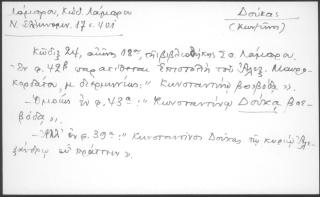 Λάμπρου, Κώδ. Λάμπρου
Ν. Ἑλληνομν. 17 σ. 401
Δούκας
(Κωνσ/νος)
Κῶδιξ 24, αἰῶνος 18ου, τῆς βιβλιοθήκης Σπ. Λάμπρου.
- Ἐν φ. 42β παρατίθεται ἐπιστολὴ τοῦ Ἀλεξ. Μαυρο-
κορδάτου, μὲ : "Κωνσταντίνῳ βοεβόδᾳ".
- Ὁμοίως ἐν φ. 43α : "Κωνσταντίνῳ Δούκᾳ βοε-
βόδᾳ".
- Ἀλλ' ἐν φ. 39α : "Κωνσταντῖνος Δούκας τῷ κυρίῳ Ἀλε-
ξάνδρῳ εὖ πράττειν".